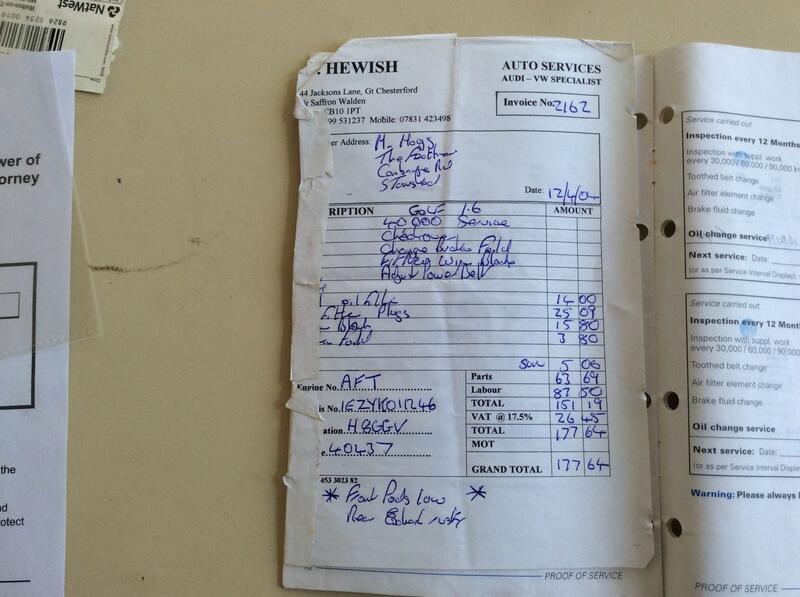 NatWest
9826 0234 0019
wer of
orney
the
nd
rotect
HEWISH
AUTO SERVICES
AUDI – VW SPECIALIST
44 Jacksons Lane, Gt Chesterford
r Saffron Walden
CB10 1PT
99 531237 Mobile: 07831 423498
Invoice No. 2162
er Address: M. Hogg
The
Rd
Date: 12/4/0
RIPTION
AMOUNT
GOLF 1.6
40 000 Service
Change Brake Fluid
Wiper Blades
Adjust Power Belt
oil Filter 14 00
Plugs 25 09
15 80
3 80
Sun 5 00
Parts 63 69
Labour 87 50
TOTAL 151 19
VAT @ 17.5% 26 45
TOTAL 177 64
MOT
GRAND TOTAL 177 64
Engine No. AFT
is No. 1EZYK01R46
ation H8GGV
e. 40437
453 3023 82
* Front Pads low *
Rear rusty
PROOF OF SERVICE
Service carried out
Inspection every 12 Months
Inspection with suppl. work
every 30,000 / 60,000 / 90,000 km
Toothed belt change
Air filter element change
Brake fluid change
Oil change service
Next service: Date:
(or as per Service Interval Display)
Service carried out
Inspection every 12 Mont
Inspection with suppl. work
every 30,000 / 60,000 / 90,000
Toothed belt change
Air filter element change
Brake fluid change
Oil change service
Next service: Date:
(or as per Service Interval Displa
Warning: Please always
PROOF OF SERVICE